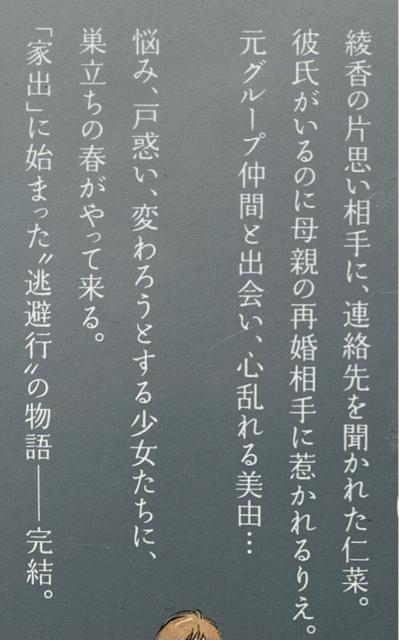 綾香の片思い相手に、連絡先を聞かれた仁菜。
彼氏がいるのに母親の再婚相手に惹かれるりえ。
元グループ仲間と出会い、心乱れる美由…
悩み、戸惑い、変わろうとする少女たちに、
巣立ちの春がやって来る。
「家出」に始まった〝逃避行〟の物語――完結。